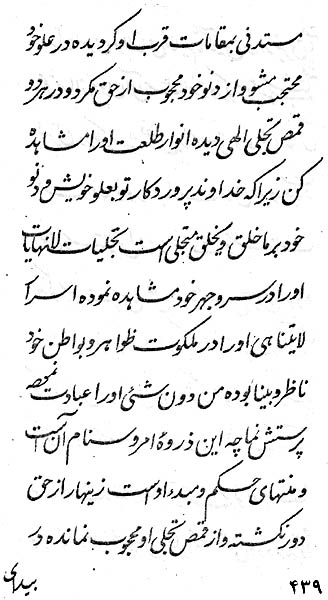 مستدنی بمقامات قرب او گردیده در علو خود
محتجب مشو و از دنو خود محجوب از حق مگرد و در هر دو
قمص تجلی الهی دیده انوار طلعت او را مشاهده
کن زیرا که خداوند پروردگار تو بعلو خویش و دنو
خود بر ما خلق و یخلق متجلی است تجلیات لانهایات
او را در سر و جهر خود مشاهده نموده اسرار
لایتناهی او را در ملکوت ظواهر و بواطن خود
ناظر و بینا بوده من دون شئی او را عبادت
پرستش نما چه این ذروهٔ امر و سنام آن است
و منتهای حکم و مبدء او است زینهار از حق
دور نگشته و از قمص تجلی او محجوب نمانده در
بیدای
۴۳۹